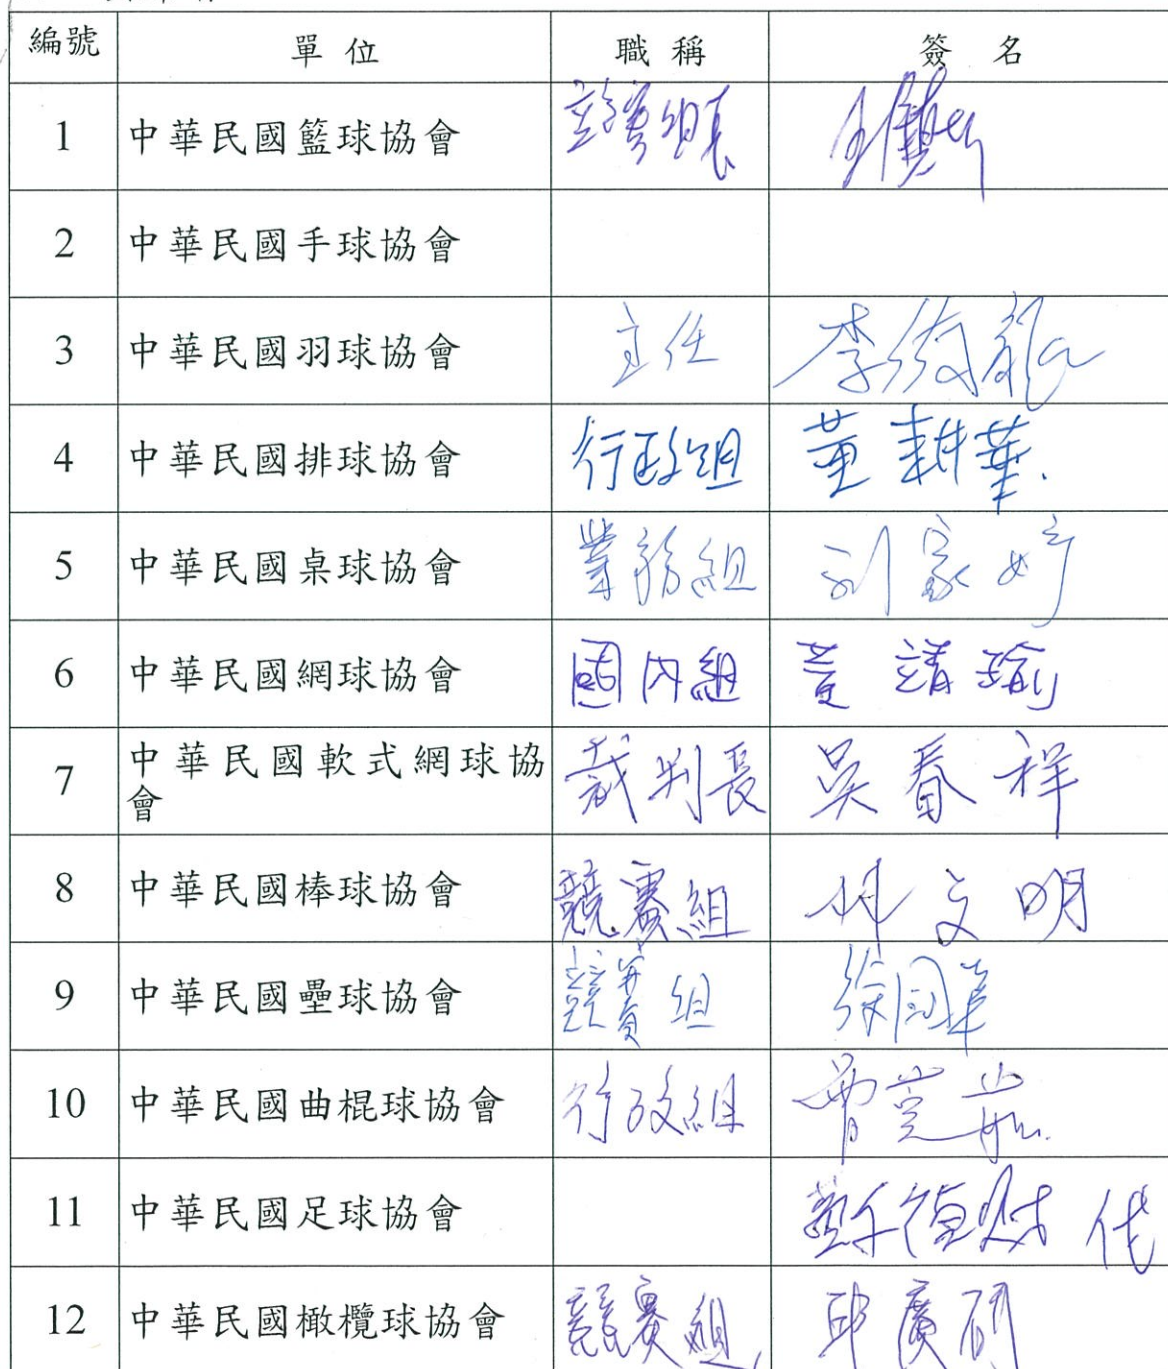 編號 單位 職稱 簽名
1 中華民國籃球協會 競賽組長
2 中華民國手球協會
3 中華民國羽球協會 主任 李
4 中華民國排球協會 行政組 董耕華
5 中華民國桌球協會 業務組 刘家婷
6 中華民國網球協會 國內組
7 中華民國軟式網球協 裁判長 吳春祥
會
8 中華民國棒球協會 競賽組 林文明
9 中華民國壘球協會 競賽組 徐国華
10 中華民國曲棍球協會 行政組 曾
11 中華民國足球協會 蘇德財 代
12 中華民國橄欖球協會 競賽組 邱廣研